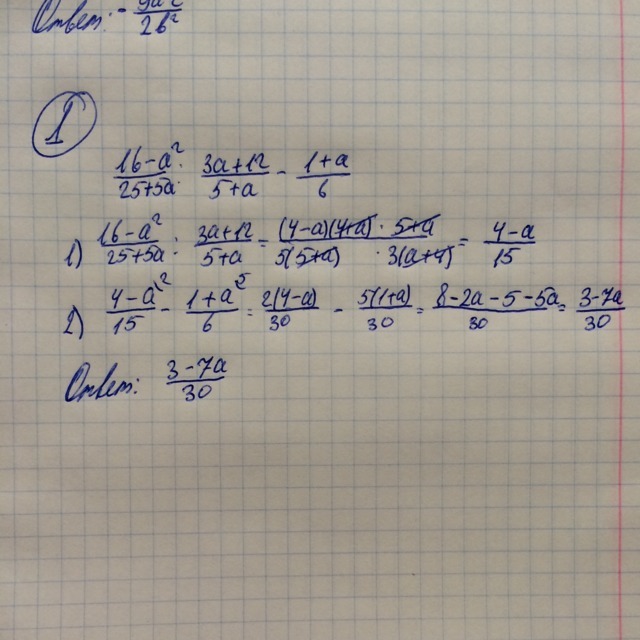 Ответ: - 9a²/2b²
1
(16-a²)/(25+5a) : (3a+12)/(5+a) - (1+a)/6
1) (16-a²)/(25+5a) : (3a+12)/(5+a) = ((4-a)(4+a) · 5+a)/(5(5+a) · 3(a+4)) = (4-a)/15
2) (4-a)/15 \² - (1+a)/6 \⁵ = 2(4-a)/30 - 5(1+a)/30 = (8-2a-5-5a)/30 = (3-7a)/30
Ответ: (3-7a)/30